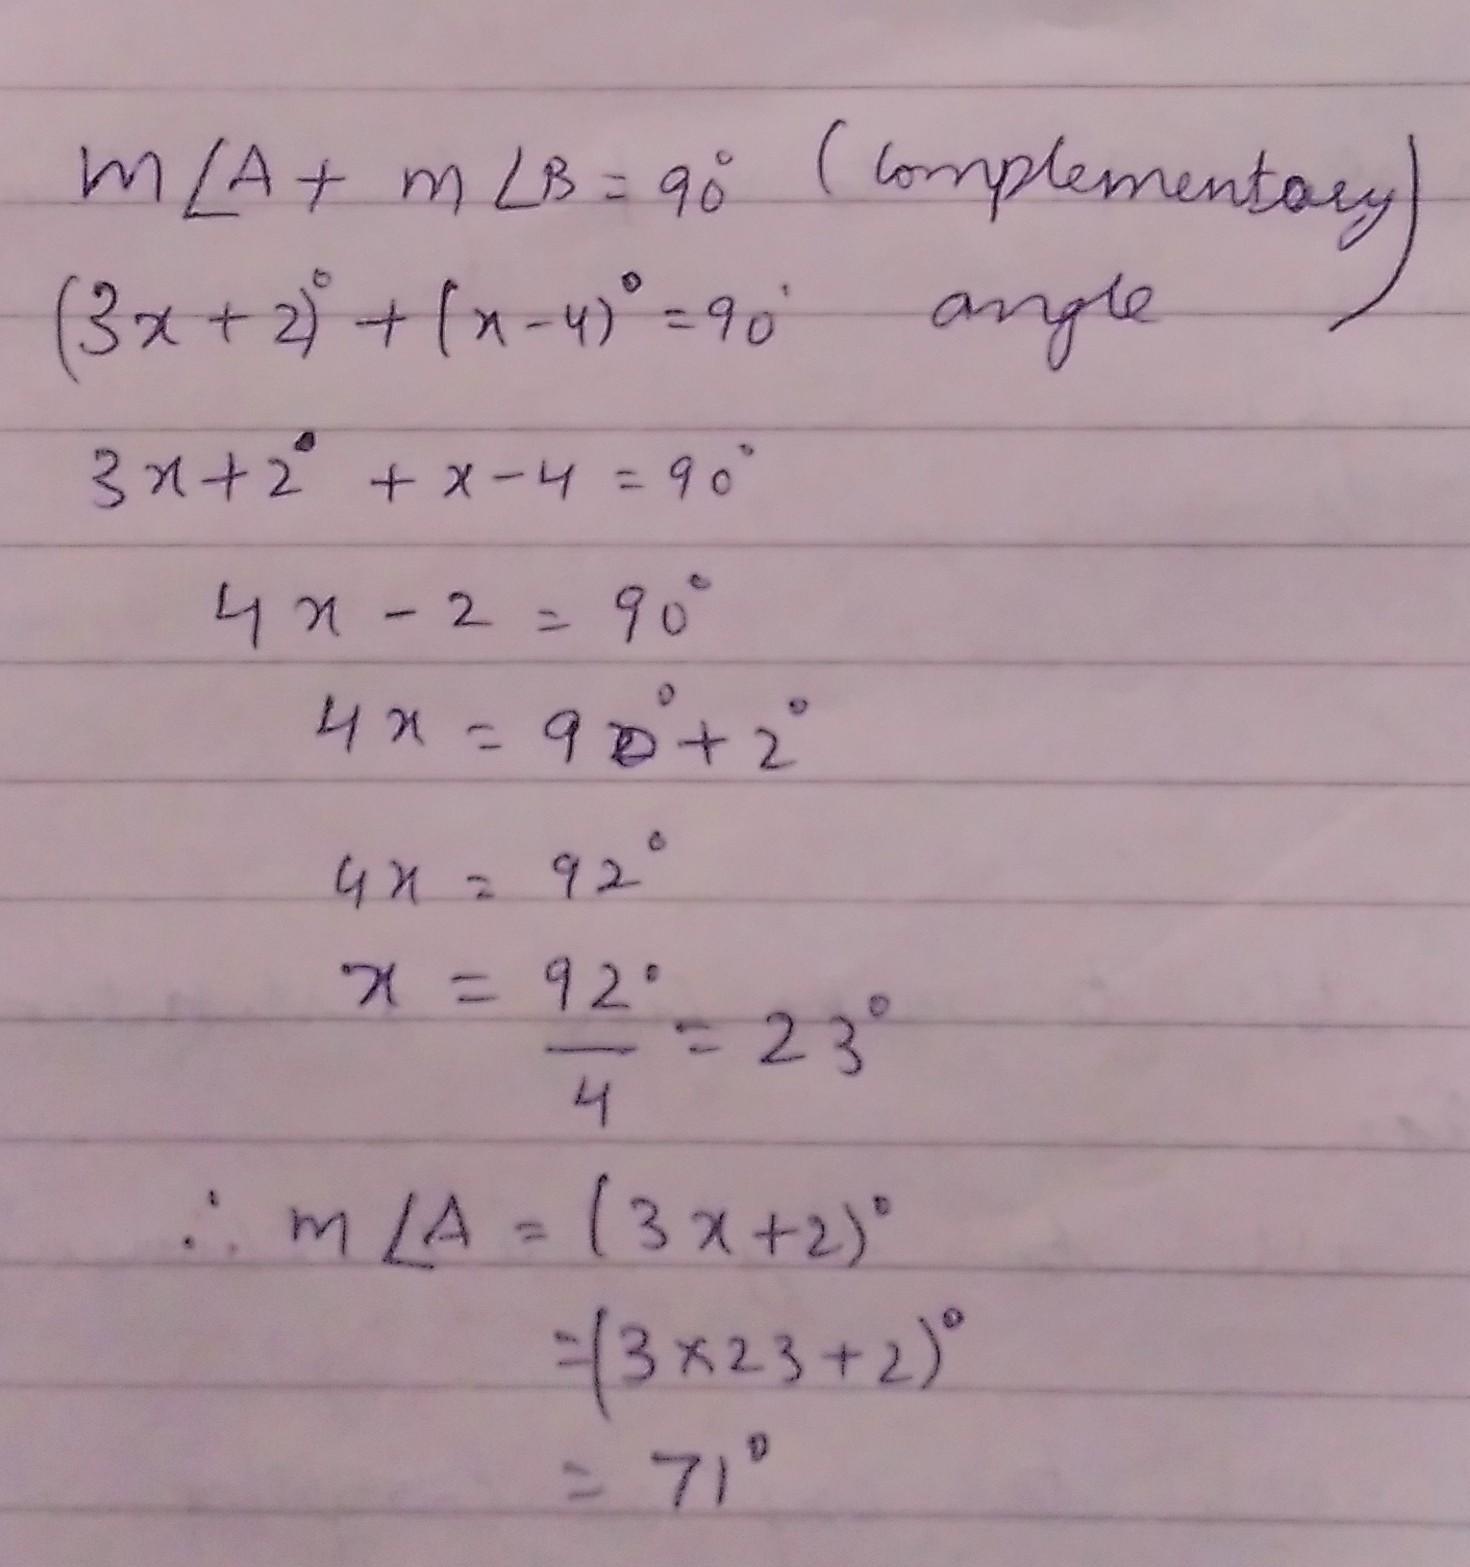 m∠A + m∠B = 90° (Complementary
(3x + 2)° + (x - 4)° = 90° angle)
3x + 2° + x - 4 = 90°
4x - 2 = 90°
4x = 90° + 2°
4x = 92°
x = 92°/4 = 23°
∴ m∠A = (3x + 2)°
= (3 × 23 + 2)°
= 71°